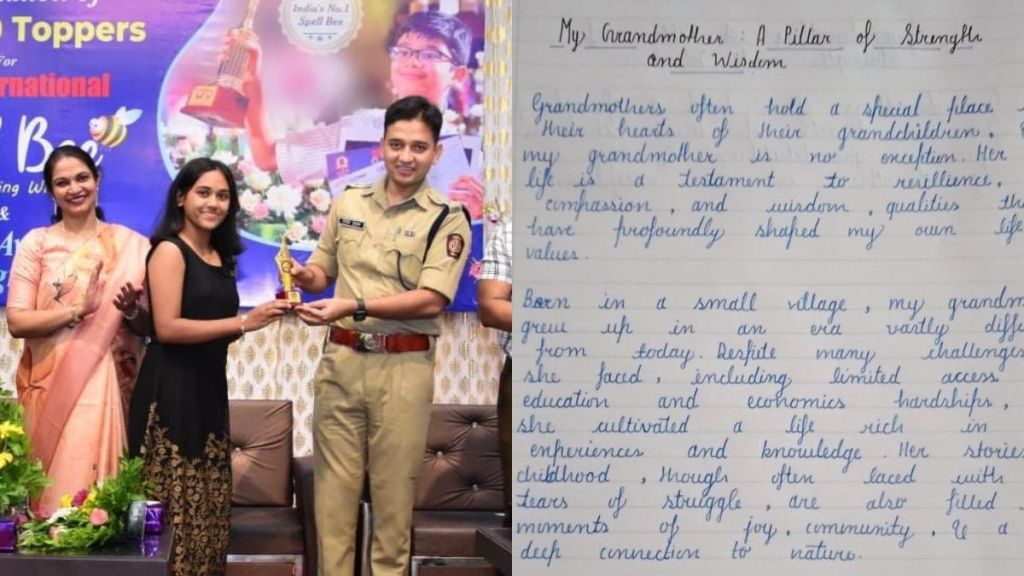 India's No.1
Spell Bee
Toppers
For
rnational
Bee
&
My Grandmother : A Pillar of Strength
and Wisdom
Grandmothers often hold a special place
their hearts of their grandchildren.
my grandmother is no exception. Her
life is a testament to resillience,
compassion, and wisdom, qualities
have profoundly shaped my own life
values.
Born in a small village, my grandm
grew up in an era vastly diffe
from today. Despite many challenges
she faced, including limited access
education and economics hardships,
she cultivated a life rich in
experiences and knowledge. Her stories
childhood, though often laced with
tears of struggle, are also filled
moments of joy, community, & a
deep connection to nature.